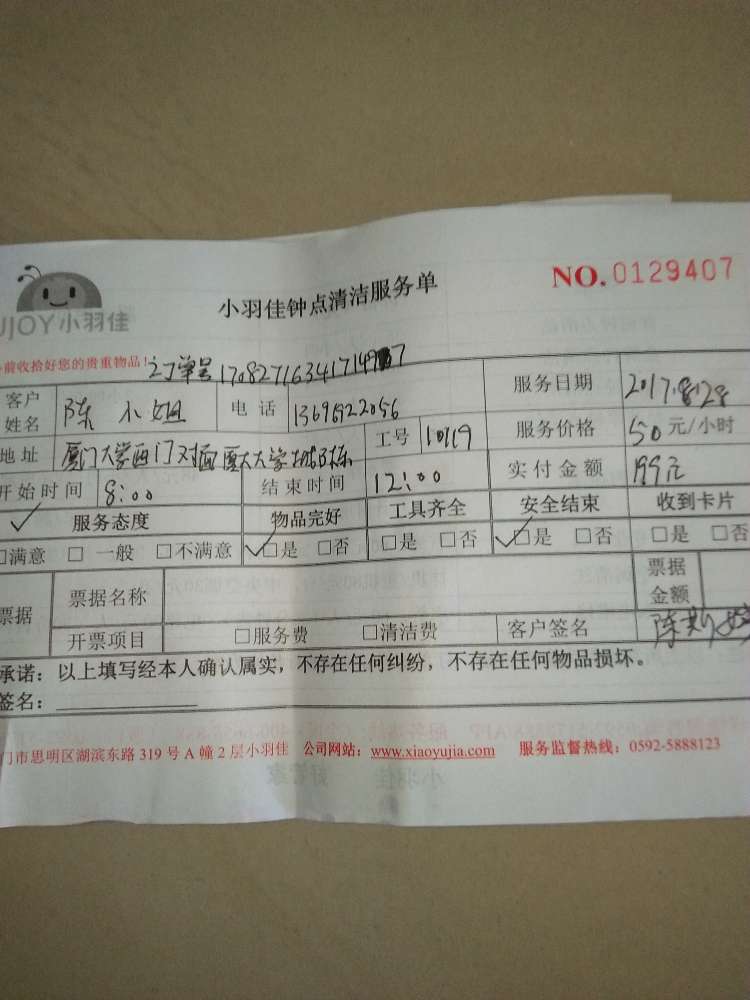 NO.0129407
小羽佳钟点清洁服务单
JOY小羽佳
前收拾好您的贵重物品!
订单号
客户姓名 陈小姐 电话 服务日期 2017.8.28
地址 厦门大学西门对面厦大大学 工号 服务价格 50元/小时
开始时间 8:00 结束时间 12:00 实付金额 199元
服务态度 物品完好 工具齐全 安全结束 收到卡片
□满意 □一般 □不满意 □是 □否 □是 □否 □是 □否 □是 □否
票据 票据名称 票据金额
开票项目 □服务费 □清洁费 客户签名 陈
承诺：以上填写经本人确认属实，不存在任何纠纷，不存在任何物品损坏。
签名：
门市思明区湖滨东路319号A幢2层小羽佳 公司网站：www.xiaoyujia.com 服务监督热线：0592-5888123